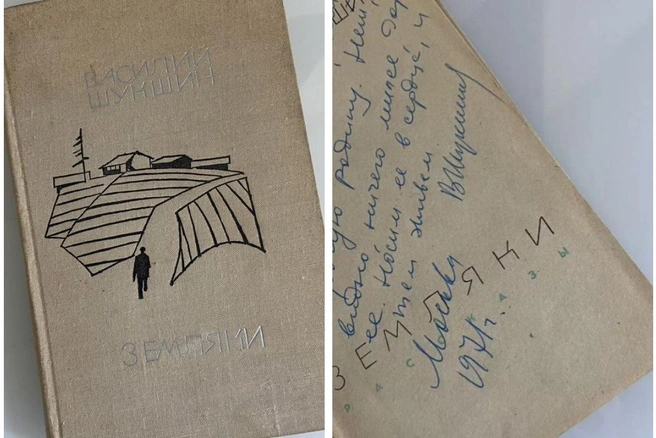 ВАСИЛИЙ
ШУКШИН
ЗЕМЛЯКИ
родину. Нет,
видно ничего милее
ее. Носим ее в сердце, и
тем живем
ВШукшин
Москва
1971г.
ЗЕМЛЯКИ